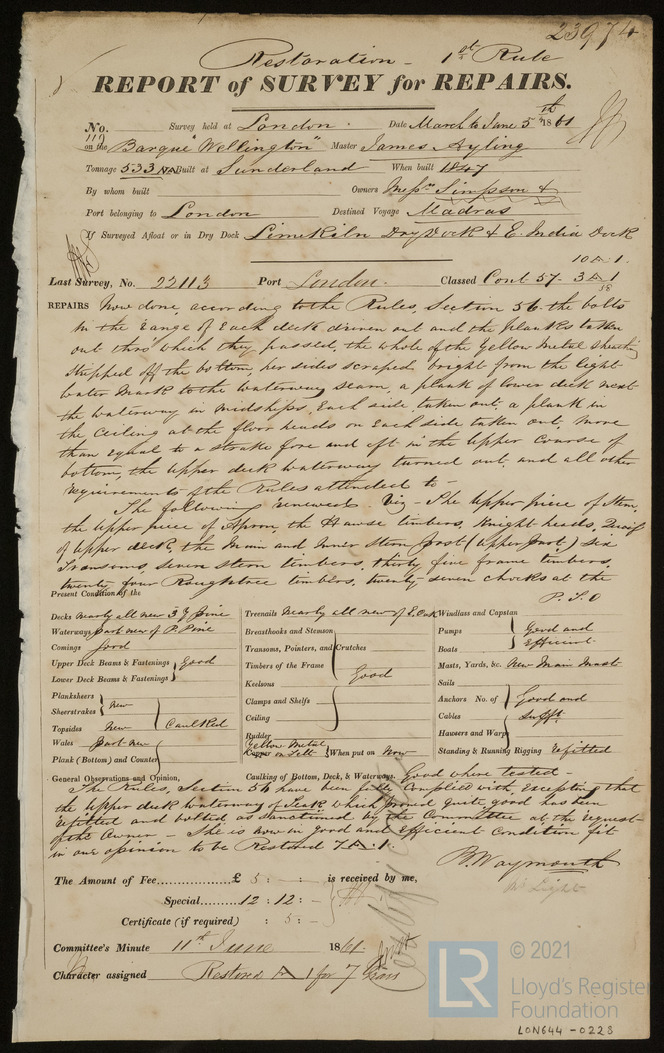 23974
Restoration - 1st Rule
REPORT of SURVEY for REPAIRS.
No. Survey held at London. Date March to June 5th 1861
110
on the Barque "Wellington" Master James Ayling
Tonnage 533 Built at Sunderland When built 1847
By whom built Owners Messrs Simpson &
Port belonging to London Destined Voyage Madras
If Surveyed Afloat or in Dry Dock Limekiln Dry Dock & E. India Dock
10 A 1.
Last Survey, No. 22113 Port London. Classed Cont 57 - 3 A 1
58
REPAIRS Now done, according to the Rules, Section 56. the bolts
in the range of each deck driven out and the planks taken
out thro which they passed, the whole of the Yellow Metal sheathing
stripped off the bottom, her sides scraped bright from the light
water mark to the waterway seam, a plank of lower deck next
the waterway in midships each side taken out, a plank in
the ceiling at the floor heads on each side taken out, more
than equal to a strake fore and aft in the upper course of
bottom, the upper deck waterway turned out, and all other
requirements of the Rules attended to -
The following renewed Viz - The upper piece of Stem,
the upper piece of Apron, the Hawse timbers, Knight heads,
of upper deck, the Main and Inner Stern post (upper part) six
Transoms, seven stern timbers, thirty five frame timbers,
twenty four Roughtree timbers, twenty seven chocks at the
P.T.O
Present Condition of the
Decks nearly all new 3 Y Pine Treenails Nearly all new of E. Oak Windlass and Capstan
Waterways part new of P. Pine Breasthooks and Stemson Pumps Good and
Comings Good Transoms, Pointers, and Crutches Boats Efficient
Upper Deck Beams & Fastenings Good Timbers of the Frame Good Masts, Yards, &c. New Main Mast
Lower Deck Beams & Fastenings Keelsons Sails
Planksheers New Clamps and Shelfs Anchors No. of Good and
Sheerstrakes Ceiling Cables Sufft
Topsides New Caulked Rudder Hawsers and Warps
Wales part new Yellow Metal
Plank (Bottom) and Counter Copper on Felt When put on Now Standing & Running Rigging refitted
General Observations and Opinion, Caulking of Bottom, Deck, & Waterways, Good where tested -
The Rules, Section 56 have been fully Complied with, excepting that
the upper deck waterway of Teak which proved quite good has been
refitted and bolted as sanctioned by the Committee at the request
of the Owner - She is now in good and efficient condition fit
in our opinion to be Restored 7 A 1.
B. Waymouth
Mr Light
The Amount of Fee.................£ 5 : - : - is received by me,
Special.........12 : 12 : -
Certificate (if required) : 5 : -
Committee's Minute 11th June 1861.
Character assigned Restored A 1 for 7 Years
© 2021
LR
Lloyd's Register
Foundation
LON644-0223